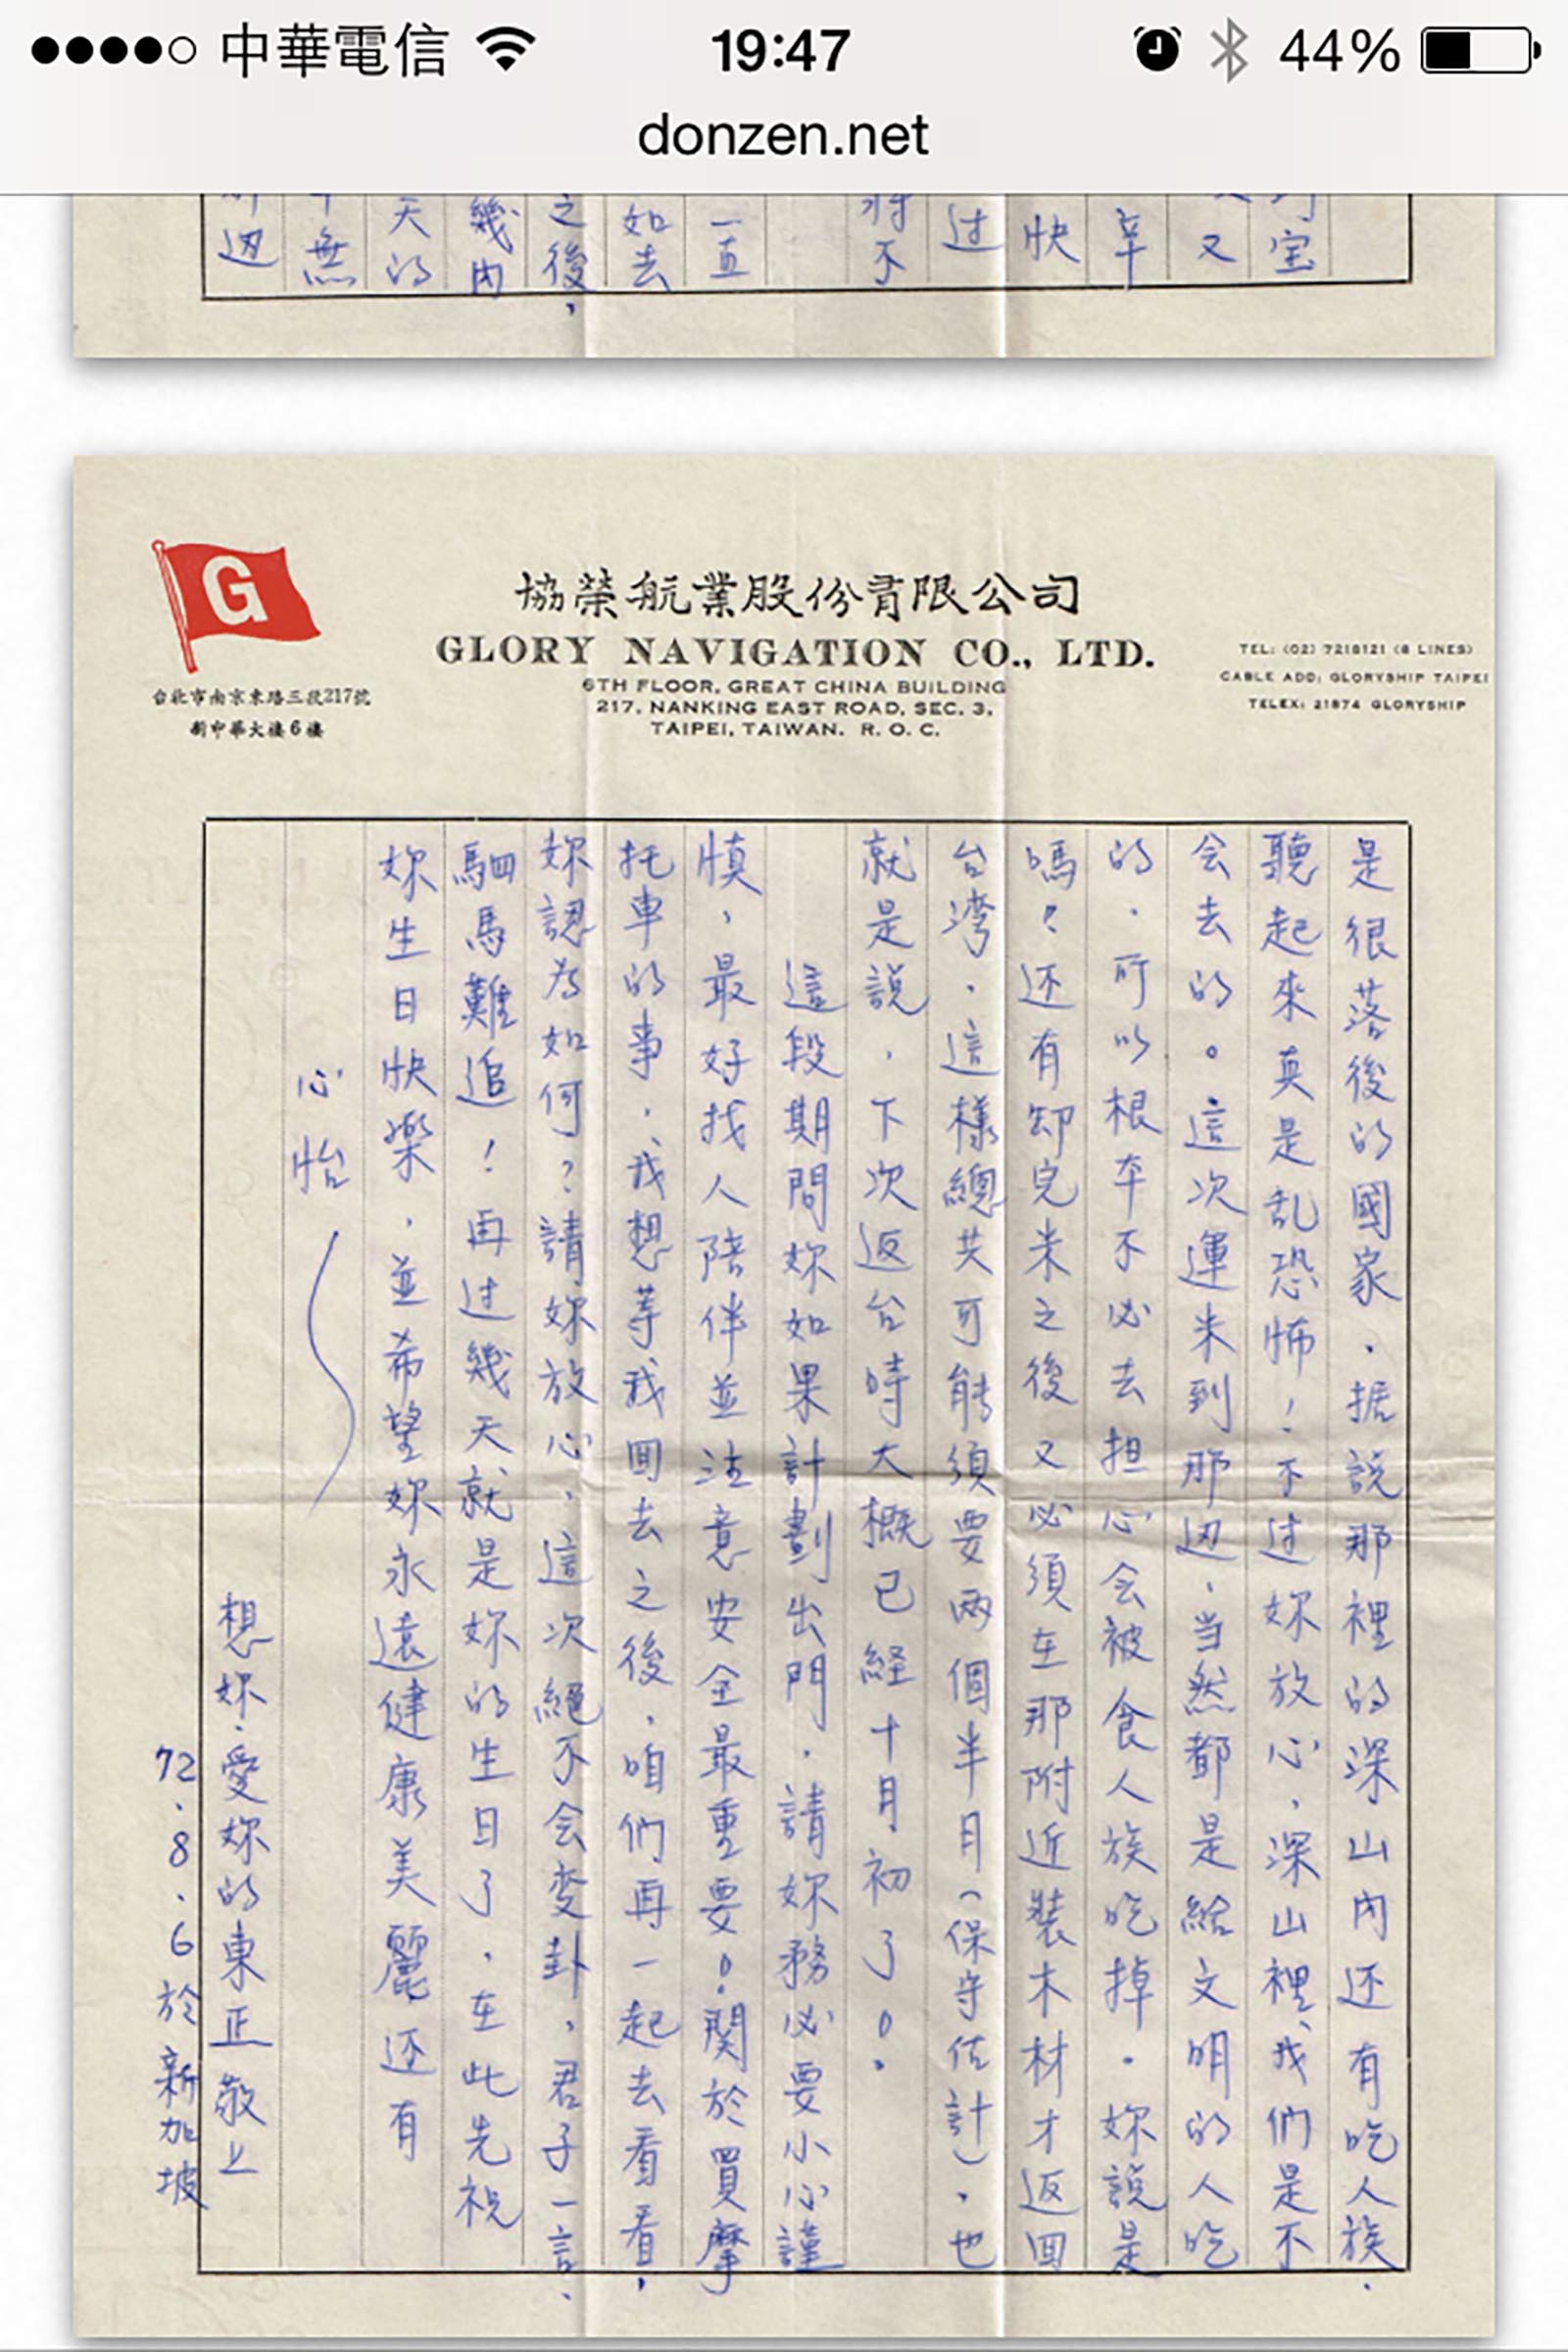 中華電信
19:47
44%
donzen.net
宝
又
辛
快
过
將不
一直
如去
之後，
幾內
天的
無
那边
G
台北市南京東路三段217號
新中華大樓6樓
協榮航業股份有限公司
GLORY NAVIGATION CO., LTD.
6TH FLOOR, GREAT CHINA BUILDING
217, NANKING EAST ROAD, SEC. 3,
TAIPEI, TAIWAN. R. O. C.
TEL: (02) 7218121 (8 LINES)
CABLE ADD: GLORYSHIP TAIPEI
TELEX: 21874 GLORYSHIP
是很落後的國家．据說那裡的深山內还有吃人族．
聽起來真是乱恐怖！不过妳放心，深山裡我們是不
会去的。這次運米到那边，当然都是給文明的人吃
的．所以根本不必去担心会被食人族吃掉．妳說是
嗎？还有卸完米之後又必須在那附近裝木材才返回
台湾．這樣總共可能須要兩個半月（保守估計）．也
就是說．下次返台時大概已経十月初了。
這段期間妳如果計劃出門．請妳務必要小心謹
慎，最好找人陪伴並注意安全最重要！関於買摩
托車的事．我想等我回去之後，咱們再一起去看看，
妳認為如何？請妳放心，這次絕不会变卦，君子一言、
駟馬難追！再过幾天就是妳的生日了．在此先祝
妳生日快樂，並希望妳永遠健康美麗还有
心怡
想妳．愛妳的東正敬上
72.8.6於新加坡